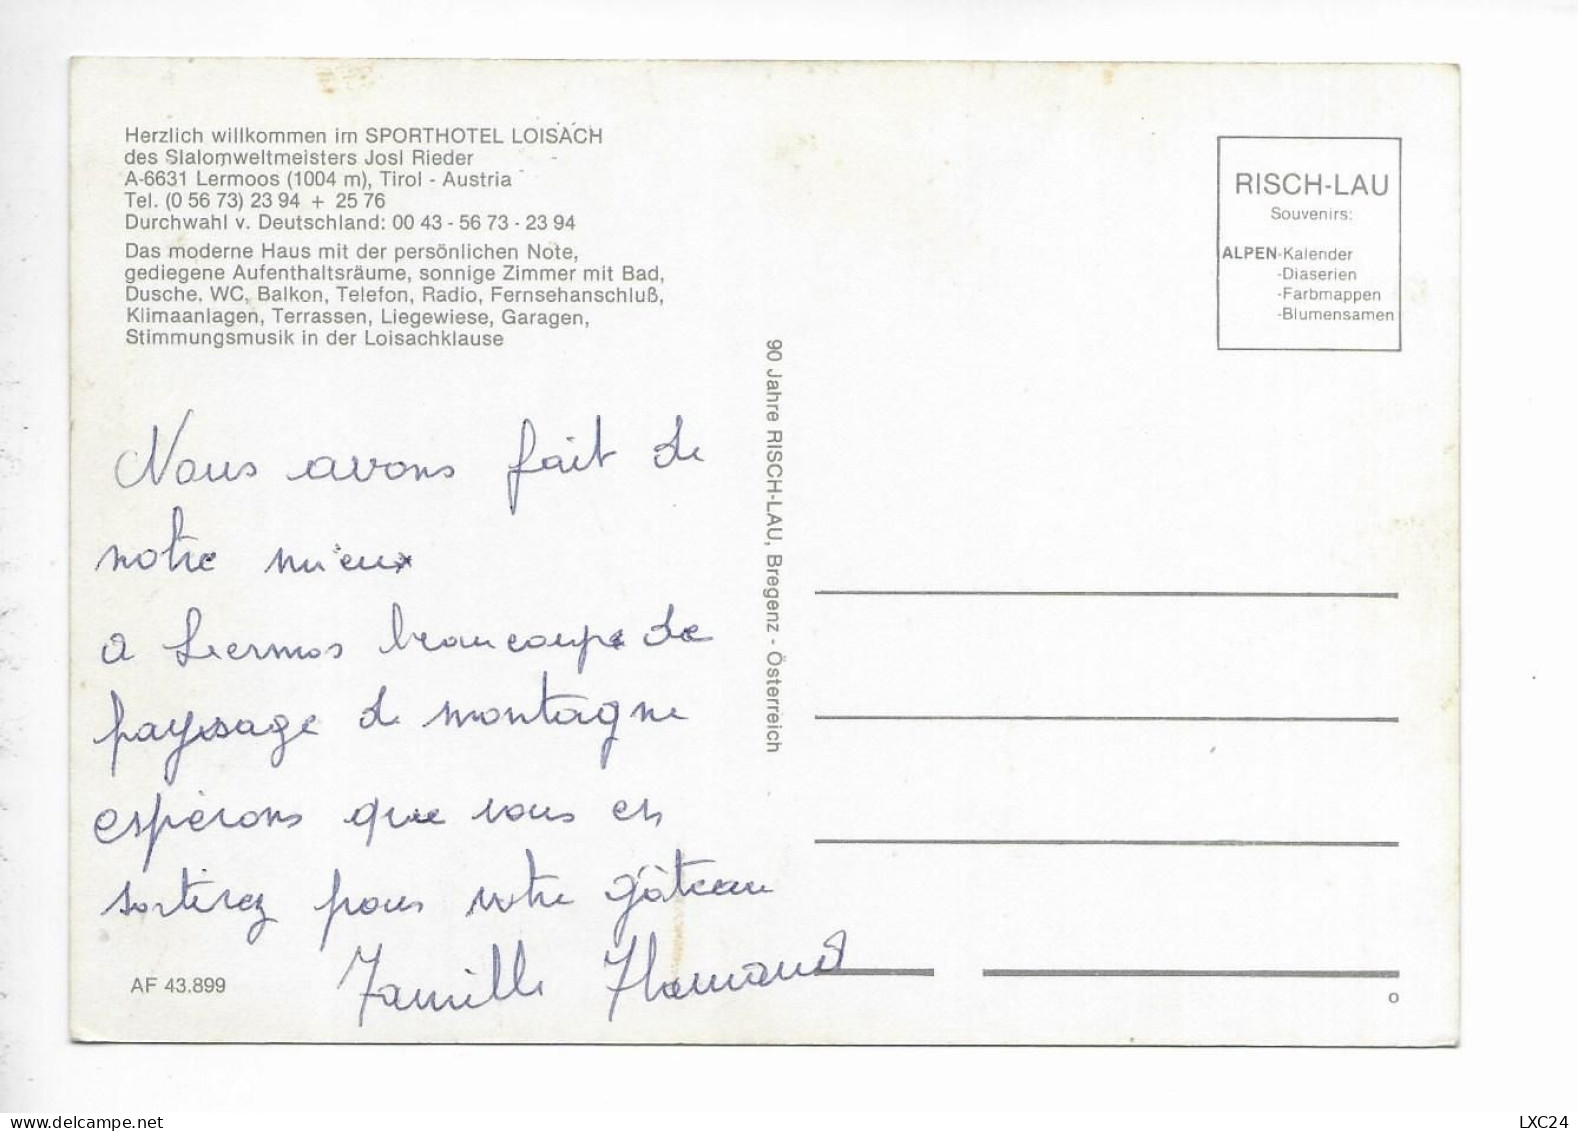 Herzlich willkommen im SPORTHOTEL LOISACH
des Slalomweltmeisters Josl Rieder
A-6631 Lermoos (1004 m), Tirol - Austria
Tel. (0 56 73) 23 94 + 25 76
Durchwahl v. Deutschland: 00 43 - 56 73 - 23 94
Das moderne Haus mit der persönlichen Note,
gediegene Aufenthaltsräume, sonnige Zimmer mit Bad,
Dusche, WC, Balkon, Telefon, Radio, Fernsehanschluß,
Klimaanlagen, Terrassen, Liegewiese, Garagen,
Stimmungsmusik in der Loisachklause
Nous avons fait de
notre mieux
a Lermos beaucoup de
paysage de montagne
espèrons que vous en
sortirez pour votre gâteau
Famille Flamand
AF 43.899
90 Jahre RISCH-LAU, Bregenz - Österreich
RISCH-LAU
Souvenirs:
ALPEN-Kalender
-Diaserien
-Farbmappen
-Blumensamen
o
www.delcampe.net
LXC24